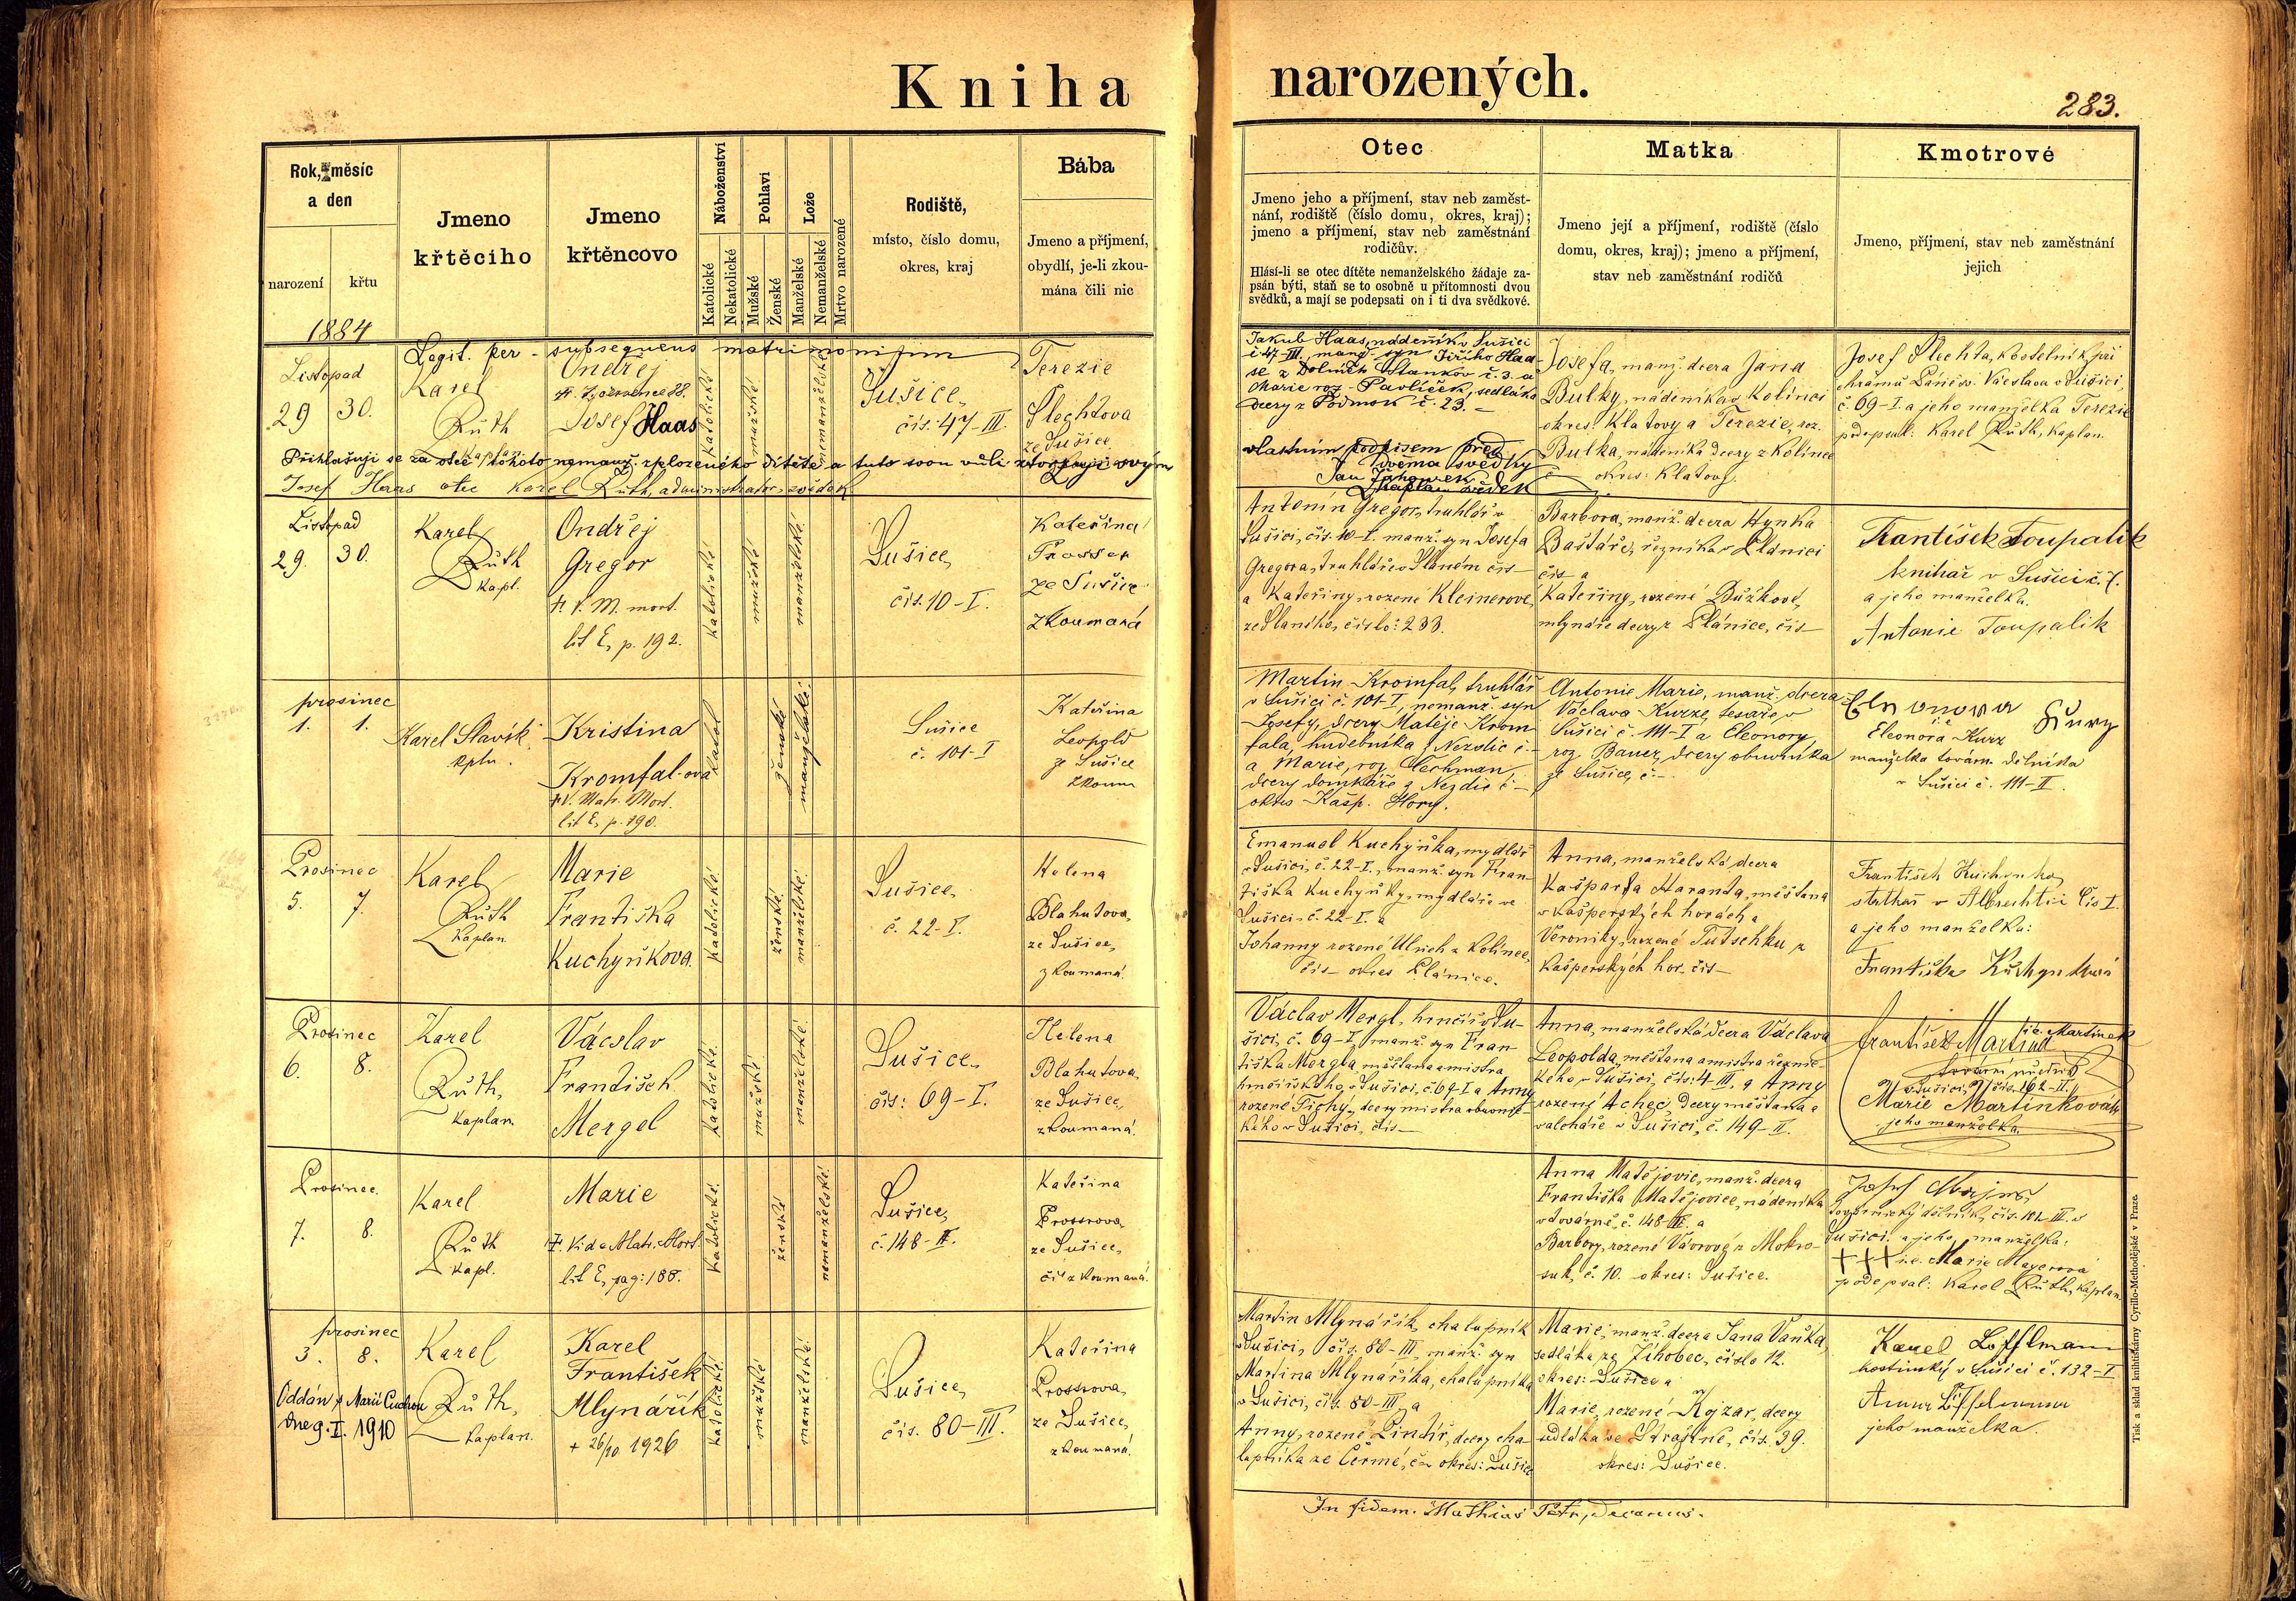 Kniha narozených.
283.
Rok, měsíc
a den
narození
křtu
1884
Jmeno
křtěcího
Jmeno
křtěncovo
Náboženství
Katolické
Nekatolické
Pohlaví
Mužské
Ženské
Lože
Manželské
Nemanželské
Mrtvo narozené
Rodiště,
místo, číslo domu,
okres, kraj
Bába
Jmeno a příjmení,
obydlí, je-li zkou-
mána čili nic
Otec
Jmeno jeho a příjmení, stav neb zaměst-
nání, rodiště (číslo domu, okres, kraj);
jmeno a příjmení, stav neb zaměstnání
rodičův.
Hlásí-li se otec dítěte nemanželského žádaje za-
psán býti, staň se to osobně u přítomnosti dvou
svědků, a mají se podepsati on i ti dva svědkové.
Matka
Jmeno její a příjmení, rodiště (číslo
domu, okres, kraj); jmeno a příjmení,
stav neb zaměstnání rodičů
Kmotrové
Jmeno, příjmení, stav neb zaměstnání
jejich
Legit. per subsequens matrimonium
Listopad
29 30.
Karel
Růth
kaplan
Ondřej
Josef Haas
katolické
mužské
nemanželské
Sušice,
čís. 47-III.
Terezie
Šlechtova
ze Sušice
Jakub Haas, nádeník v Sušici
č 47-III, manž. syn Jiřího Haa-
se z Dolních Staňkov č. 3. a
Marie roz. Pavlíček, sedláka
dcery z Podmok č. 23.
Josefa, manž. dcera Jana
Bulky, nádeníka v Kolinci
okres: Klatovy a Terezie, roz.
Bulka, nádeníka dcery z Kolince
okres: Klatovy.
Josef Šlechta, kostelník při
chrámu Páně sv. Václava v Sušici,
č. 69-I. a jeho manželka Terezie
podepsal: Karel Růth, kaplan.
Přihlašuji se za otce tohoto nemanž. zplozeného dítěte a tuto svou vůli stvrzuji svým
vlastním podpisem před
dvěma svědky
Josef Haas otec Karel Růth, administrator, svědek
kaplan svědek
Listopad
29. 30.
Karel
Růth
kapl.
Ondřej
Gregor
†. V. M. mort.
lit E, p. 192.
katolické
mužské
manželské
Sušice,
čís. 10-I.
Kateřina
Prosser
ze Sušice
zkoumaná
Antonín Gregor, truhlář v
Sušici, čís. 10-I. manž. syn Josefa
Gregora, truhláře v Slaném čís-
a Kateřiny, rozené Kleinerové,
ze Slaného, číslo: 233.
Barbora, manž. dcera Hynka
Baštáře, řezníka v Plánici
čís- a
Kateřiny, rozené Dužkové,
mlynáře dcery z Plánice, čís-
František Toupalik
knihař v Sušici č. 7.
a jeho manželka.
Antonie Toupalik
prosinec
1. 1.
Karel Slavík
kpln.
Kristina
Kromfal-ová
†V. Matr. Mort.
lit E, p. 190.
katol
ženské
manželské
Sušice
č. 101-I
Kateřina
Leopold
ze Sušice
zkoum
Martin Kromfal, truhlář
v Sušici č. 101-I, nemanž. syn
Josefy, dcery Matěje Krom-
fala, hudebníka z Nezdic č.-
a Marie, roz. Flechman,
dcery domkáře z Nezdic č-
okres Kašp. Hory.
Antonie Marie, manž. dcera
Václava Kurze, tesaře v
Sušici č. 111-I a Eleonory,
roz. Bauer, dcery obuvníka
ze Sušice, č.-
Eleonora Kurz
manželka továrn. dělníka
v Sušici č. 111-II.
Prosinec
5. 7.
Karel
Růth
kaplan
Marie
Františka
Kuchyňkova.
katolické
ženské
manželské
Sušice,
č. 22-I.
Helena
Blahutova,
ze Sušice,
zkoumaná.
Emanuel Kuchyňka, mydlář
v Sušici, č. 22-I., manž. syn Fran-
tiška Kuchyňky, mydláře ve
Sušici, č. 22-I. a
Johanny rozené Ulrich z Kolince,
čís- okres Plánice.
Anna, manželská dcera
Kašpara Haranta, měšťana
v Kašperských horách a
Veroniky, rozené Tutschku z
Kašperských hor. čís-
František Kuchynka,
a jeho manželka:
Františka
Prosinec
6. 8.
Karel
Růth,
kaplan.
Václav
František
Mergel
katolické
mužské
manželské
Sušice,
čís: 69-I.
Helena
Blahutova,
ze Sušice,
zkoumaná.
Václav Mergl, hrnčíř v Su-
šici, č. 69-I, manž. syn Fran-
tiška Mergla, měšťana a mistra
hrnčířského v Sušici, č. 69-I a Anny
rozené Tichý, dcery mistra
v Sušici, čís-
Anna, manželská dcera Václava
Leopolda, měšťana a mistra řeznic-
kého v Sušici, čís: 4-III, a Anny
rozené Achec, dcery měšťana a
valcháře v Sušici, č. 149-II.
František Martinek
v Sušici, čís. 162-II.
Marie Martinková
jeho manželka.
Prosinec.
7. 8.
Karel
Růth
kapl.
Marie
†. Vide Matr. Mort.
lit E, pag: 188.
katolické
ženské
nemanželské
Sušice,
č. 148-II.
Kateřina
Prossrova,
ze Sušice,
čís zkoumaná.
Anna Matějovic, manž. dcera
Františka Matějovice, nádeníka
v továrně, č. 148-II. a
Barbory, rozené Vávrové z Mokro-
suk, č. 10. okres: Sušice.
Josef
továrnický dělník, čís. 101-III. v
Sušici a jeho manželka:
+++ i.e. Marie Mayerová
podepsal: Karel Růth, kaplan
prosinec
3. 8.
Oddán s Marií
dne 9. I. 1910
Karel
Růth,
kaplan.
Karel
František
Mlynářík
+ 26/10 1926
katolické
mužské
manželské
Sušice,
čís. 80-III.
Kateřina
Prossrova,
ze Sušice,
zkoumaná
Martin Mlynářík, chalupník
v Sušici, čís. 80-III, manž. syn
Martina Mlynáříka, chalupníka
v Sušici, čís. 80-III, a
Anny, rozené Lindř, dcery cha-
lupníka ze Čermé, č- okres: Sušice
Marie, manž. dcera Jana Vaňka,
sedláka ze Jihobec, číslo 12.
okres: Sušice a
Marie, rozené Kojzar, dcery
sedláka ve Strajšíně, čís. 39.
okres: Sušice.
Karel Löfflmann
hostinský v Sušici č. 132-I
Anna Löffelmann
jeho manželka.
In fidem. Mathias Petr, Decanus.
Tisk a sklad knihtiskárny Cyrillo-Methodějské v Praze.